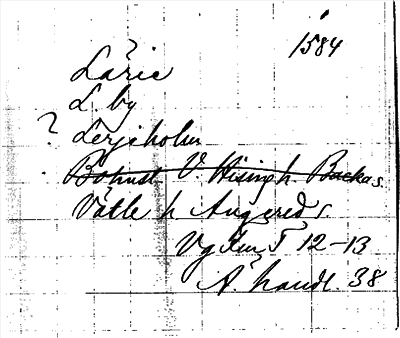 1584
Lärie
L. by
? Lerjeholm
Bohusl V Hising h. Backa s.
Vätle h Angered s.
Vg Km F 12-13
Ä. handl. 38